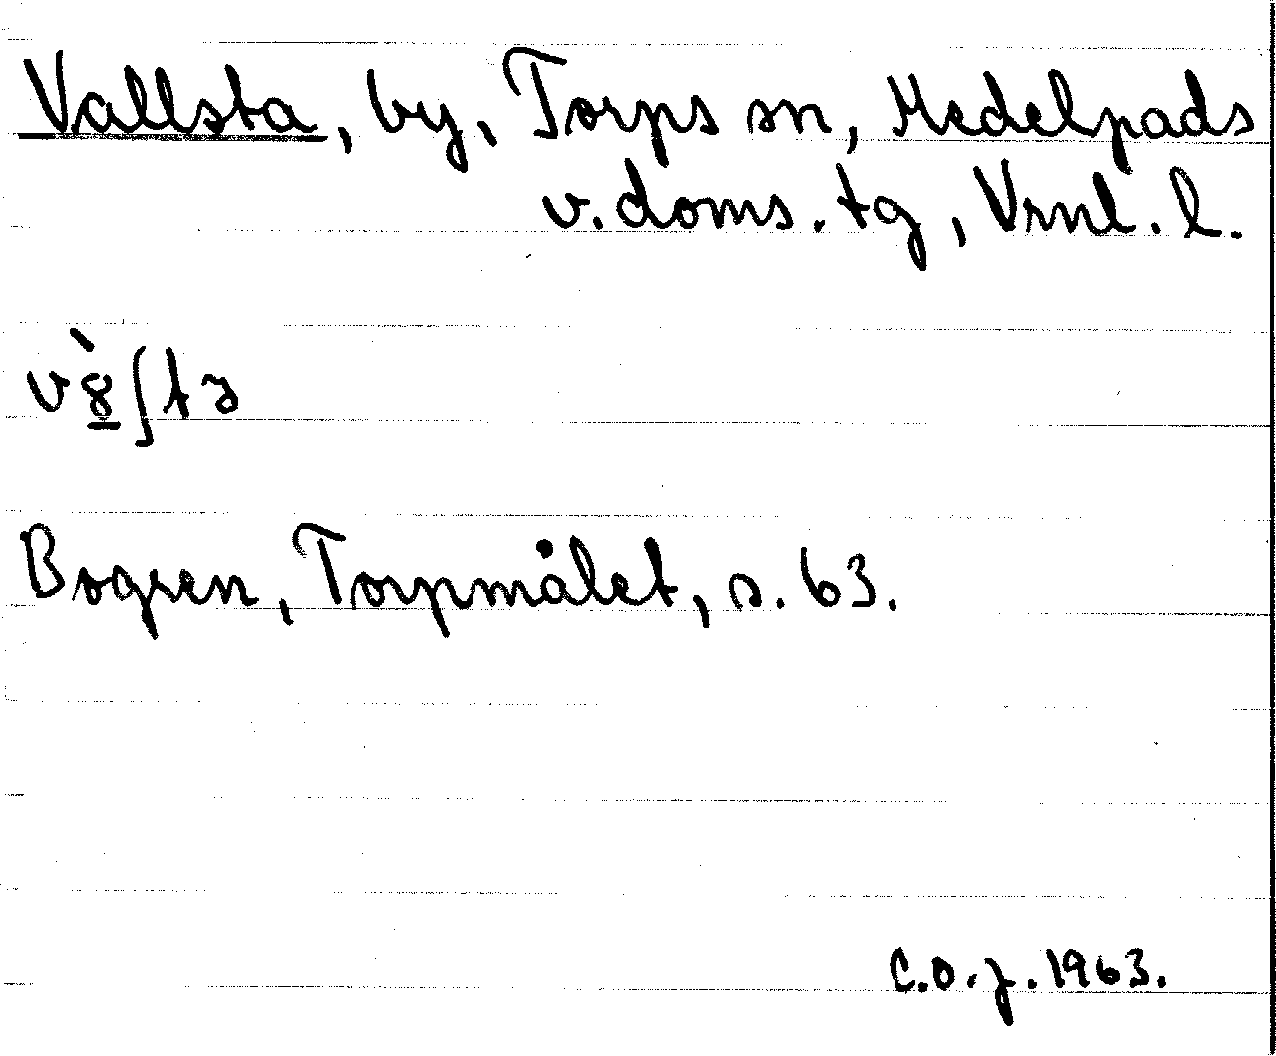 Vallsta, by, Torps sn, Medelpads
v. doms. tg, Vrnl. l.
v8̲̀ʃtɜ
Bogren, Torpmålet, s. 63.
C.O.J. 1963.